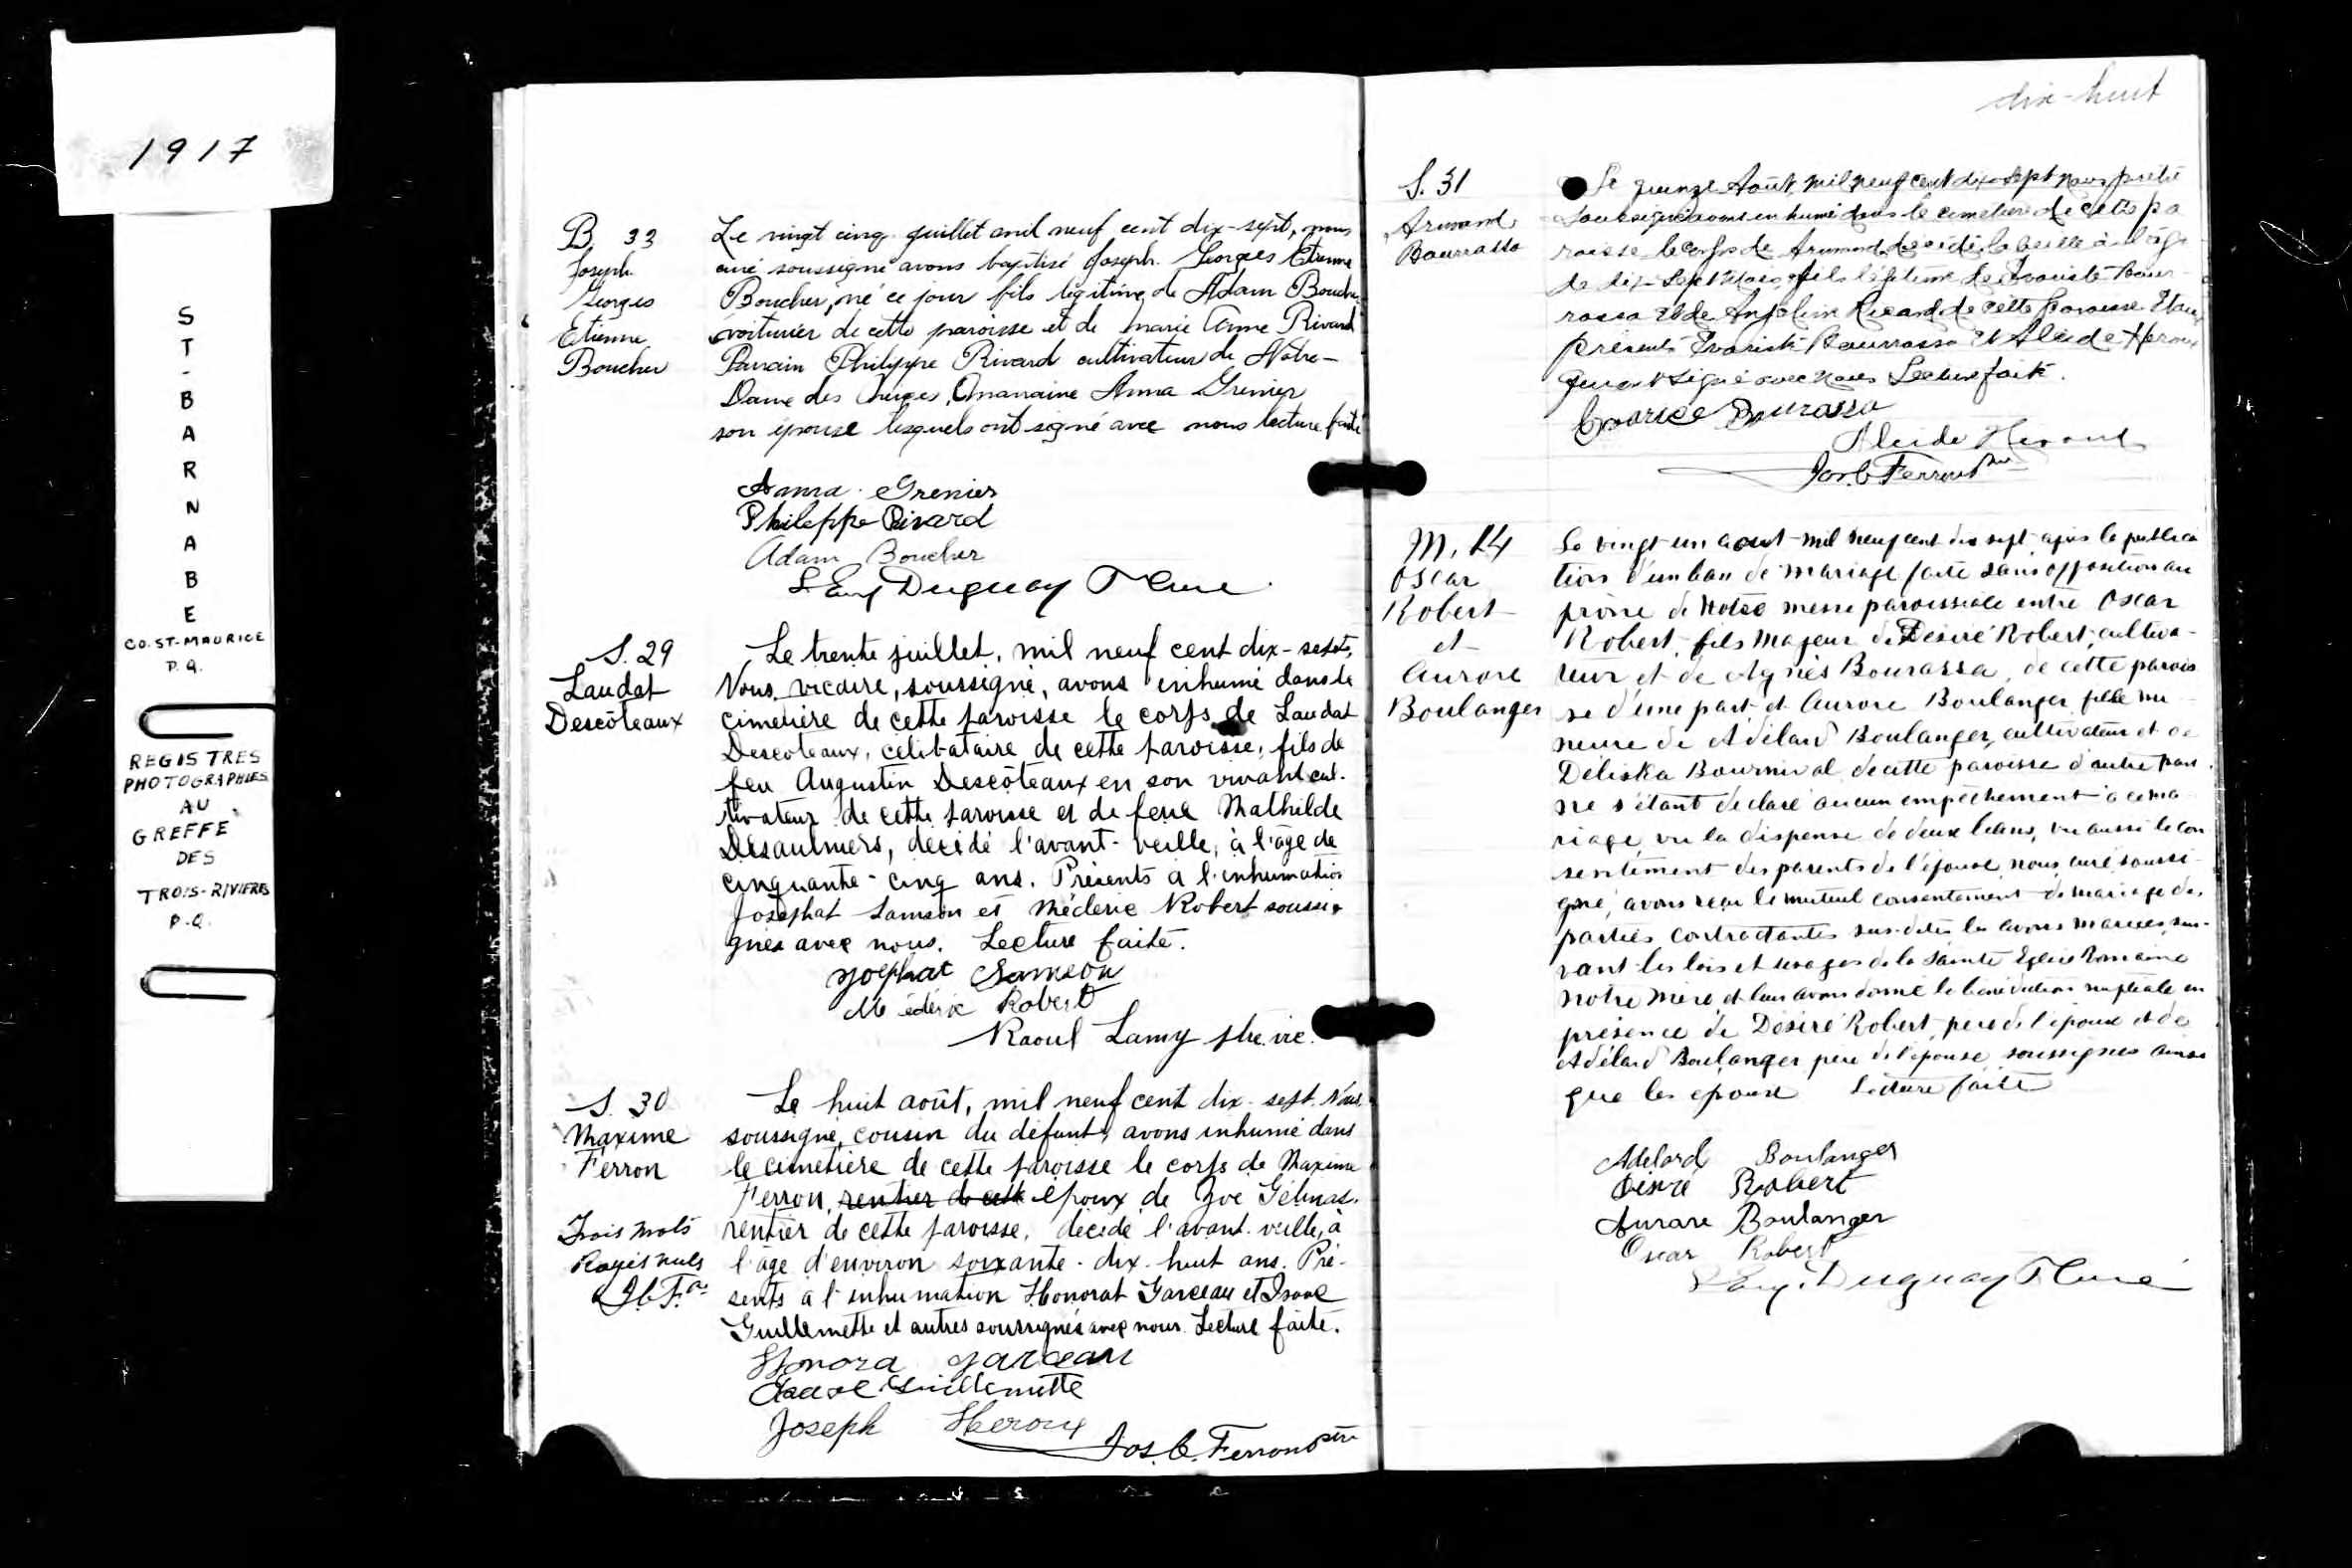 1917
ST-BARNABE
CO. ST-MAURICE
P.Q.
REGISTRES
PHOTOGRAPHIES
AU
GREFFE
DES
TROIS-RIVIERES
P.Q.
B. 33
Joseph
Georges
Etienne
Boucher
Le vingt cinq juillet mil neuf cent dix-sept, nous
curé soussigné avons baptisé Joseph Georges Etienne
Boucher, né ce jour fils légitime de Adam Boucher
voiturier de cette paroisse et de Marie Anne Rivard
Parrain Philippe Rivard cultivateur de Notre-
Dame des Neiges, marraine Anna Grenier
son épouse lesquels ont signé avec nous lecture faite
Anna Grenier
Philippe Rivard
Adam Boucher
Duguay Ptre Curé
S. 29
Laudat
Descôteaux
Le trente juillet, mil neuf cent dix-sept,
Nous, vicaire, soussigné, avons inhumé dans le
cimetière de cette paroisse le corps de Laudat
Descoteaux, célibataire de cette paroisse, fils de
feu Augustin Descôteaux en son vivant cul-
tivateur de cette paroisse et de feue Mathilde
Desaulniers, décédé l'avant-veille, à l'âge de
cinquante-cinq ans. Présents à l'inhumation
Josephat Samson et Méderic Robert soussi-
gnés avec nous. Lecture faite.
Josphat Samson
Médéric Robert
Raoul Lamy ptre. vic.
S. 30
Maxime
Ferron
Trois mots
Rayés nuls
J.C.F. ptre
Le huit août, mil neuf cent dix-sept. Nous,
soussigné, cousin du défunt, avons inhumé dans
le cimetière de cette paroisse le corps de Maxime
Ferron, rentier de cette époux de Zoé Gélinas,
rentier de cette paroisse, décédé l'avant-veille, à
l'âge d'environ soixante-dix-huit ans. Pré-
sents à l'inhumation Honorat Garceau et Isaac
Guillemette et autres soussignés avec nous. Lecture faite.
Honora Garceau
Isaac Guillemette
Joseph Heroux
Jos. C. Ferron ptre
dix-huit
S. 31
Armand
Bourrassa
Le quinze Août mil neuf cent dix-sept nous prêtre
soussigné avons inhumé dans le cimetière de cette pa
roisse le corps de Armand décédé la veille à l'âge
de dix-sept mois fils légitime de Evariste Bour
rassa et de Anjolina Ricard de cette paroisse Etaient
présents Evariste Bourrassa et Alcide Heroux
qui ont signé avec nous Lecture faite.
Evariste Bourassa
Alcide Heroux
Jos. C. Ferron ptre
M. 14
Oscar
Robert
et
Aurore
Boulanger
Le vingt-un aout mil neuf cent dix sept après la publica
tion d'un ban de mariage faite sans opposition au
prône de notre messe paroissiale entre Oscar
Robert, fils majeur de Désiré Robert, cultiva-
teur et de Agnès Bourassa, de cette parois
se d'une part et Aurore Boulanger fille mi-
neure de Adélard Boulanger, cultivateur et de
Déliska Bournival de cette paroisse d'autre part
ne s'étant déclaré aucun empêchement à ce ma-
riage, vu la dispense de deux bans, vu aussi le con
sentement des parents de l'épouse, nous curé soussi-
gné, avons reçu le mutuel consentement de mariage des
parties contractantes sus-dites les avons mariées sui-
vant les lois et usages de la Sainte Eglise Romaine
notre mère et leur avons donné la bénédiction nuptiale en
présence de Désiré Robert, père de l'époux et de
Adélard Boulanger père de l'épouse soussignés ainsi
que les époux Lecture faite
Adelard Boulanger
Désiré Robert
Aurore Boulanger
Oscar Robert
Duguay Ptre Curé